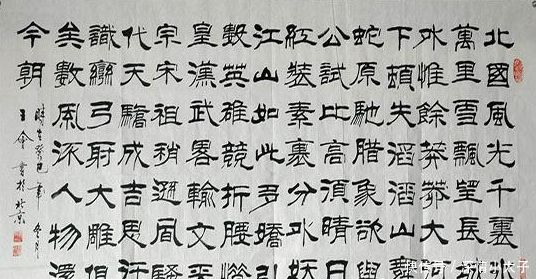 北國風光千裏
萬里雪飄望長
外惟餘莽莽大
下頓失滔滔山
蛇原馳腊象欲
公試比高須晴日
紅裝素裹分外妖
江山如此多嬌引
數英雄競折腰
皇漢武畧輸文
宗宋祖稍遜風騷
代天驕成吉思
識彎弓射大雕俱
矣數風流人物還
今朝
書於北京